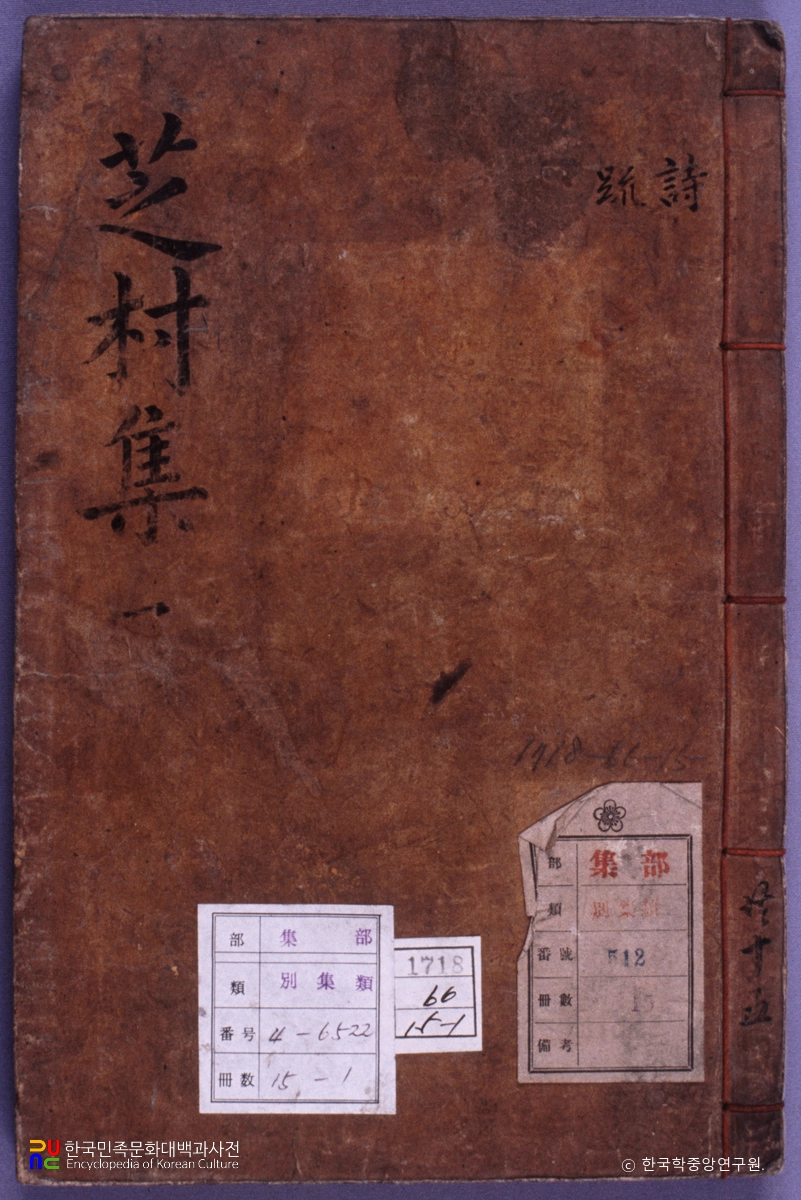 芝村集 一
詩
疏
1718-66-15
部 集部
類 別集類
番號 512
冊數 15
備考
共十五
部 集部
類 別集類
番号 4-6522
冊数 15-1
1718
66
15-1
한국민족문화대백과사전
Encyclopedia of Korean Culture
ⓒ 한국학중앙연구원